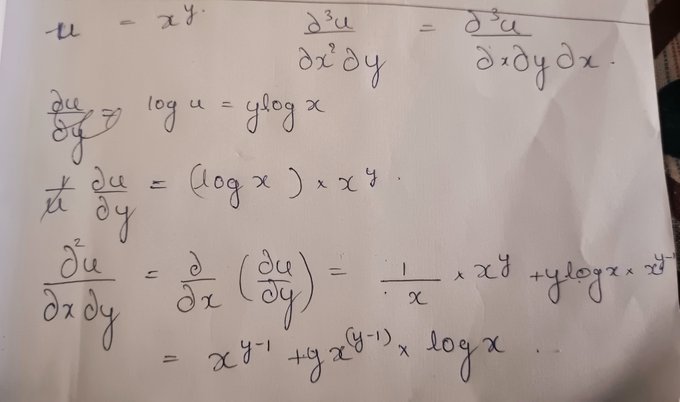 u = x^y. ∂³u/∂x²∂y = ∂³u/∂x∂y∂x.
∂u/∂y = log u = y log x
1/u ∂u/∂y = (log x) × x^y.
∂²u/∂x∂y = ∂/∂x (∂u/∂y) = 1/x × x^y + y log x × x^y-1
= x^y-1 + y x^(y-1) × log x ...